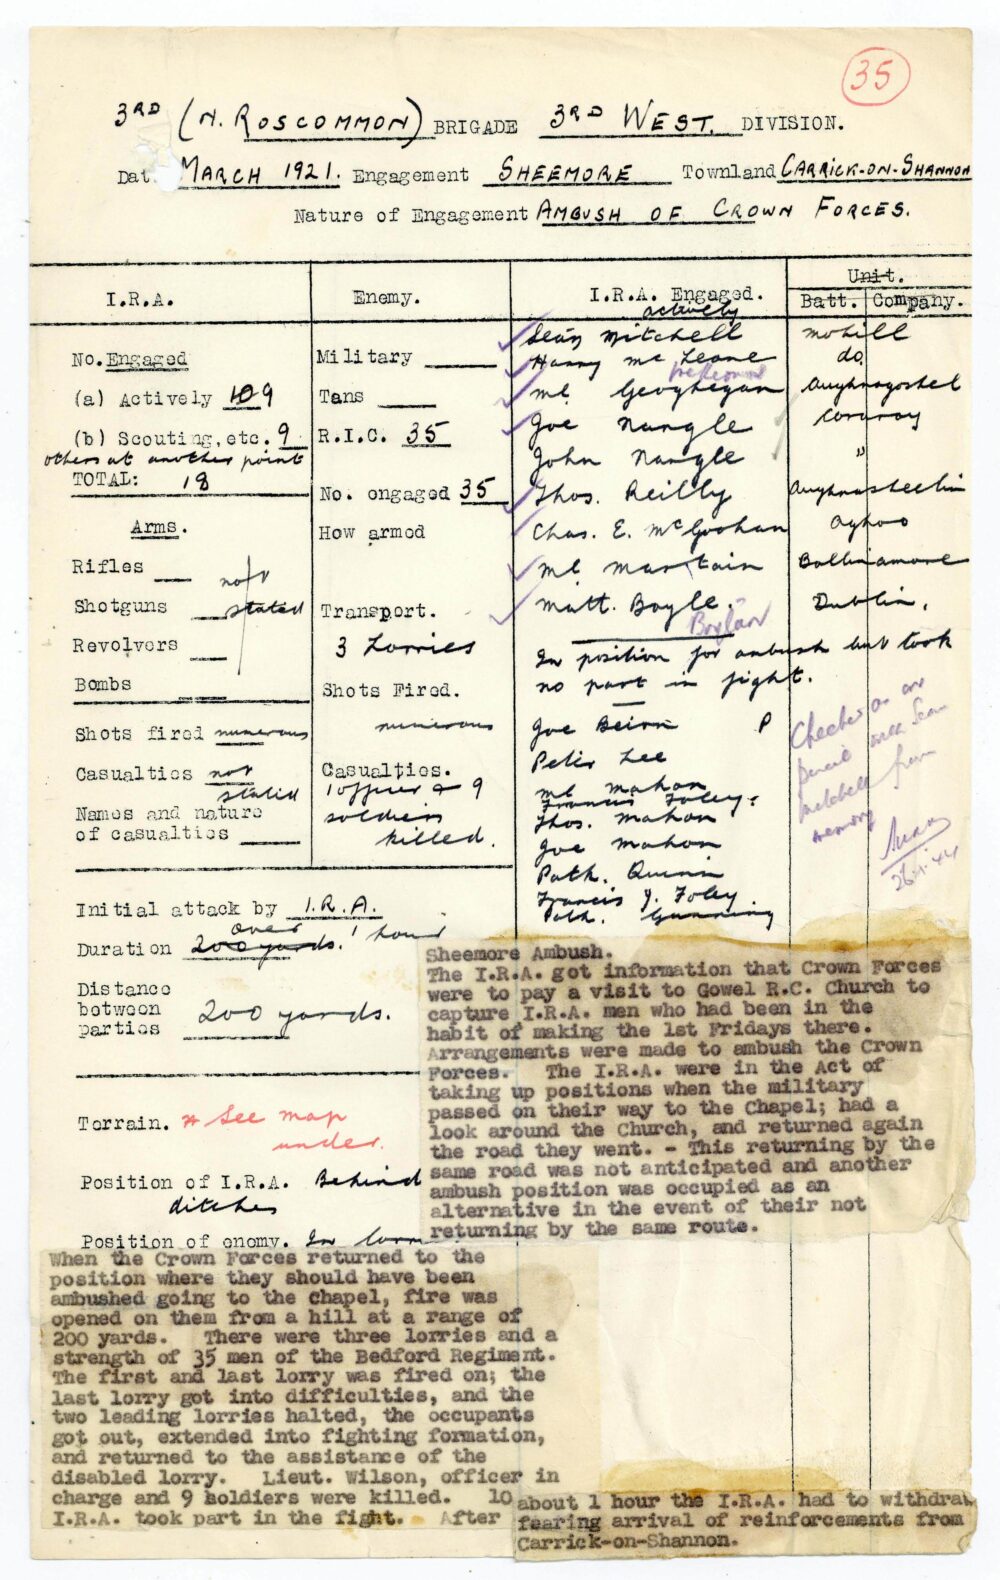 35
3RD (N. ROSCOMMON) BRIGADE 3RD WEST. DIVISION.
Dat MARCH 1921. Engagement SHEEMORE Townland CARRICK-ON-SHANNON
Nature of Engagement AMBUSH OF CROWN FORCES.
I.R.A.
No. Engaged
(a) Actively 10 9
(b) Scouting, etc. 9
others at another point
TOTAL: 18
Arms.
Rifles
not
Shotguns stated
Revolvers
Bombs
Shots fired numerous
Casualties not
stated
Names and nature
of casualties
Enemy.
Military
Tans
R.I.C. 35
No. engaged 35
How armed
Transport.
3 Lorries
Shots Fired.
numerous
Casualties.
1 officer & 9
soldiers
killed.
I.R.A. Engaged. Unit.
actively Batt. Company.
Seán Mitchell Mohill
Harry Mc Keone do.
Ml Geoghegan Aughnagoshel
Joe Nangle Coraroy
John Nangle "
Thos. Reilly Aughnasheelin
Chas. E. McGoohan Aghoo
Ml Martain Ballinamore
Matt. Boyle. Dublin.
Boylan
In position for ambush but took
no part in fight.
Joe Beirn P
Peter Lee
Ml Mahon
Francis Foley.
Thos. Mahon
Joe Mahon
Path. Quinn
Francis J. Foley
Path. Gunning
Checked
pencil Sean
Mitchell from
memory
44
Initial attack by I.R.A.
over
Duration 200 yards. 1 hour
Distance
between
parties 200 yards.
Terrain. * See map
under.
Position of I.R.A. Behind
ditches
Position of enemy. In
Sheemore Ambush.
The I.R.A. got information that Crown Forces
were to pay a visit to Gowel R.C. Church to
capture I.R.A. men who had been in the
habit of making the 1st Fridays there.
Arrangements were made to ambush the Crown
Forces. The I.R.A. were in the Act of
taking up positions when the military
passed on their way to the Chapel; had a
look around the Church, and returned again
the road they went. - This returning by the
same road was not anticipated and another
ambush position was occupied as an
alternative in the event of their not
returning by the same route.
When the Crown Forces returned to the
position where they should have been
ambushed going to the chapel, fire was
opened on them from a hill at a range of
200 yards. There were three lorries and a
strength of 35 men of the Bedford Regiment.
The first and last lorry was fired on; the
last lorry got into difficulties, and the
two leading lorries halted, the occupants
got out, extended into fighting formation,
and returned to the assistance of the
disabled lorry. Lieut. Wilson, officer in
charge and 9 soldiers were killed. 10
I.R.A. took part in the fight. After
about 1 hour the I.R.A. had to withdraw
fearing arrival of reinforcements from
Carrick-on-Shannon.